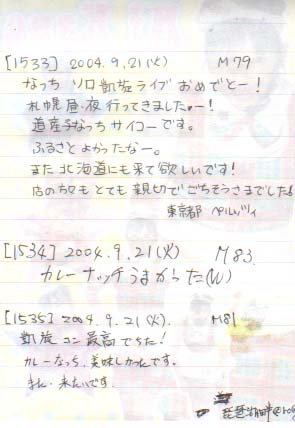 [1533] 2004.9.21(火) M79
なっち ソロ凱旋ライブ おめでとー！
札幌昼・夜行ってきましたー！
道産子なっちサイコーです。
ふるさとよかったなー。
また北海道にも来て欲しいです！
店の方もとても親切でごちそうさまでした！
東京都
[1534] 2004.9.21(火) M83
カレーナッチうまかった(W)
[1535] 2004.9.21(火). M81
凱旋コン最高でした！
カレーなっち、美味しかったです。
また、来たいです。